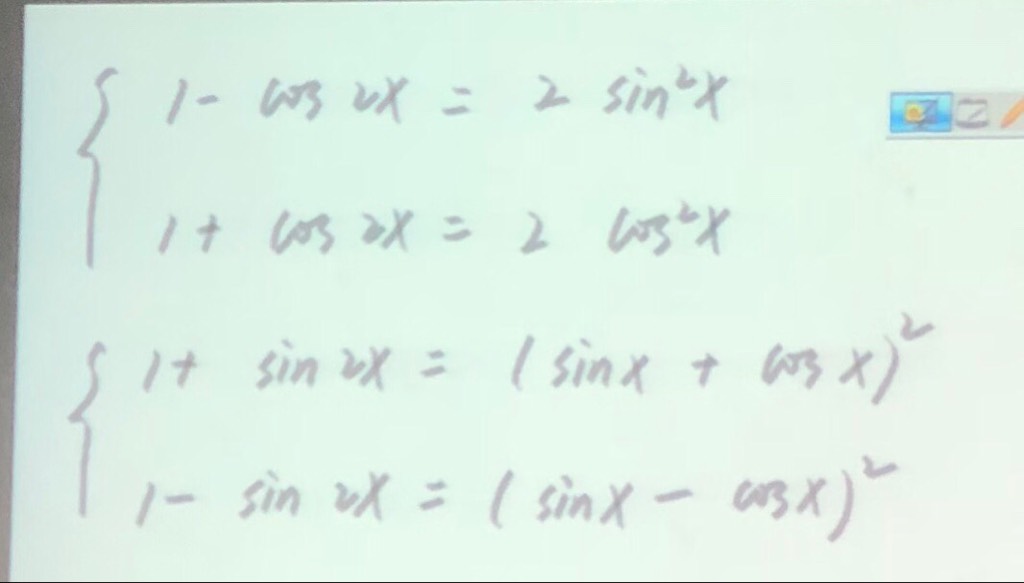 1 - cos 2x = 2 sin²x
1 + cos 2x = 2 cos²x
1 + sin 2x = (sin x + cos x)²
1 - sin 2x = (sin x - cos x)²